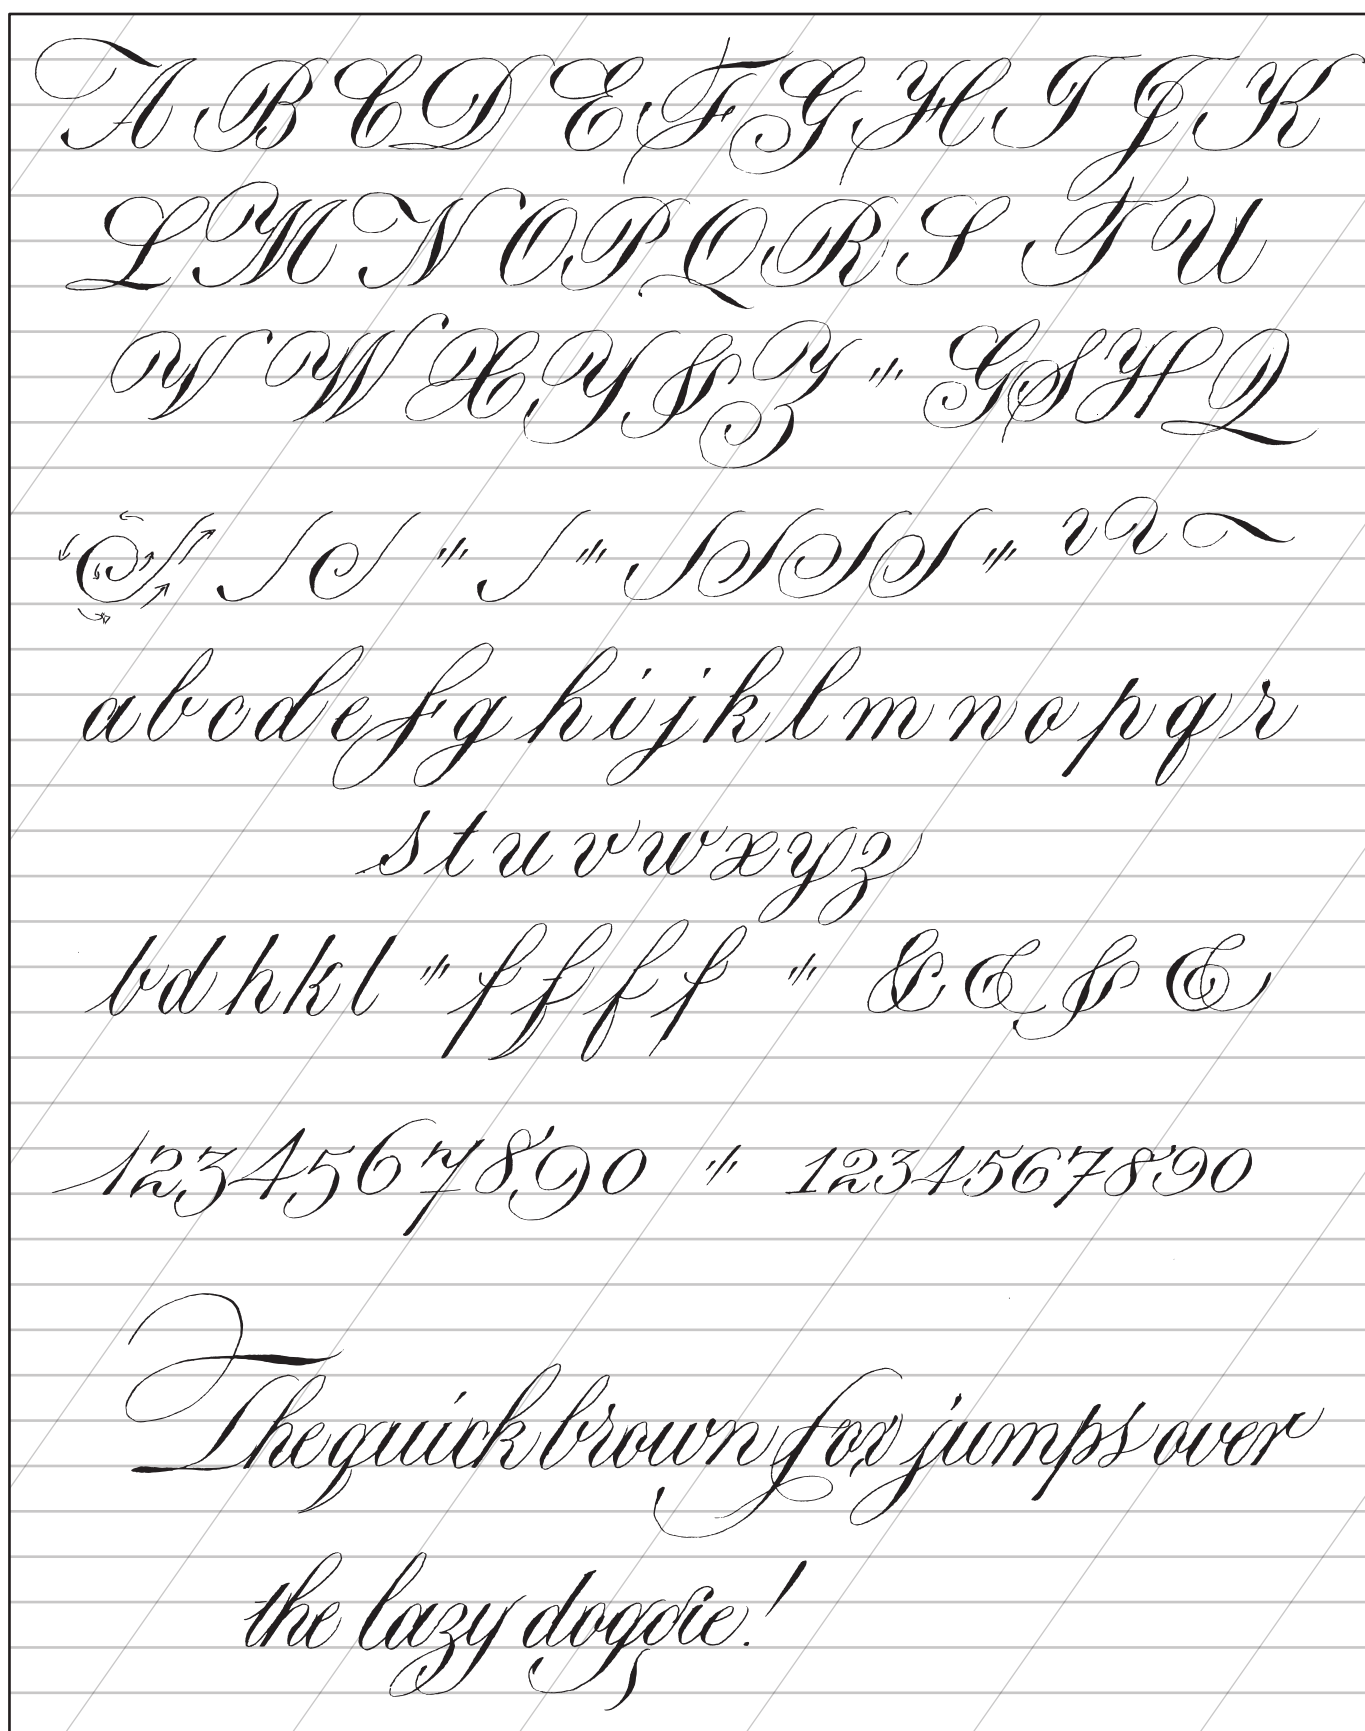 A B C D E F G H I J K
L M N O P Q R S T U
V W X Y & Z " G S H Q
a b c d e f g h i j k l m n o p q r
s t u v w x y z
b d h k l " f f f f " & & & &
1 2 3 4 5 6 7 8 9 0 " 1 2 3 4 5 6 7 8 9 0
The quick brown fox jumps over
the lazy doggie!